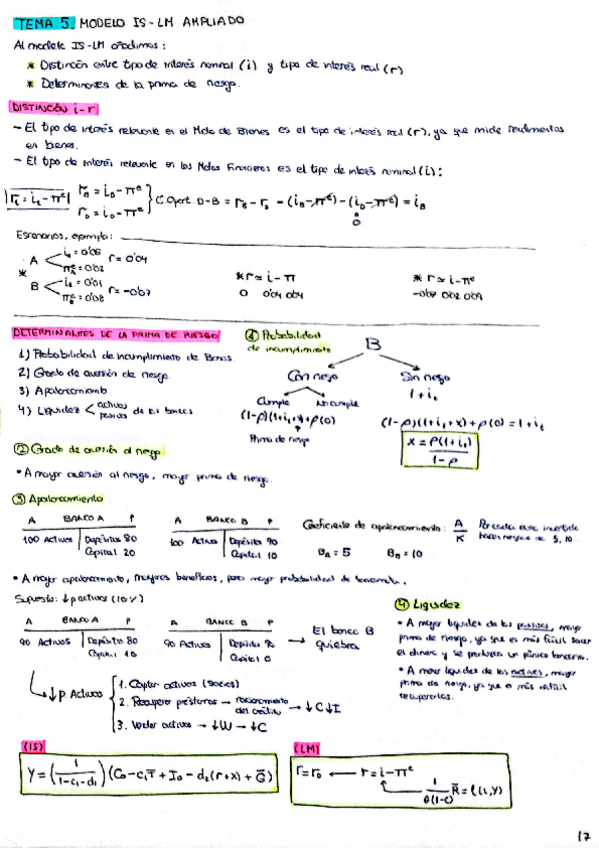 TEMA 5. MODELO IS-LM AMPLIADO
Al modelo IS-LM añadimos:
* Distinción entre tipo de interés nominal (i) y tipo de interés real (r)
* Determinantes de la prima de riesgo.
DISTINCIÓN i-r
- El tipo de interés relevante en el Mdo de Bienes es el tipo de interés real (r), ya que mide rendimientos
en bienes.
- El tipo de interés relevante en los Mdos Financieros es el tipo de interés nominal (i):
r_t = i_t - π^e
r_B = i_B - π^e
r_D = i_D - π^e
C.Oport. D-B = r_B - r_D = (i_B - π^e) - (i_D - π^e) = i_B
0
Escenarios, ejemplo:
A i_A = 0'06
π^e_A = 0'02
r = 0'04
* B i_t = 0'01
π^e_B = 0'08
r = -0'07
* r ≃ i - π
0 0'04 0'04
* r ≃ i - π^e
-0'07 0'02 0'09
DETERMINANTES DE LA PRIMA DE RIESGO
1) Probabilidad de incumplimiento de Bonos.
2) Grado de aversión de riesgo.
3) Apalancamiento
4) Liquidez < activos
pasivos de los bancos
① Probabilidad
de incumplimiento
B
Con riesgo
Sin riesgo
1 + i_t
Cumple
No cumple
(1-p)(1+i_t+x)+p(0)
Prima de riesgo
(1-p)(1+i_t+x)+p(0) = 1+i_t
x = p(1+i_t) / 1-p
② Grado de aversión al riesgo
• A mayor aversión al riesgo, mayor prima de riesgo.
③ Apalancamiento
A BANCO A P
100 Activos Depósitos 80
Capital 20
A BANCO B P
100 Activos Depósitos 90
Capital 10
Coeficiente de apalancamiento: A/K
B_A = 5 B_B = 10
• A mayor apalancamiento, mayores beneficios, pero mayor probabilidad de
Supuesto: ↓p activos (10%)
A BANCO A P
90 Activos Depósitos 80
Capital 10
A BANCO B P
90 Activos Depósitos 90
Capital 0
→ El banco B
quiebra
↳ ↓p. Activos
1. Captar activos (socios)
2. Recuperar préstamos → racionamiento
del crédito → ↓C↓I
3. Vender activos → ↓W → ↓C
④ Liquidez
• A mayor liquidez de los pasivos, mayor
prima de riesgo, ya que es más fácil sacar
el dinero y se produzca un pánico bancario.
• A menor liquidez de los activos, mayor
prima de riesgo, ya que es más difícil
recuperarlos.
(IS)
Y = (1 / 1-c₁-d₁) (C₀ - c₁T̅ + I₀ - d₂(r+x) + G̅)
(LM)
r = r₀ ← r = i - π^e
1 / θ(1-c) R̅ = l(i,Y)
17